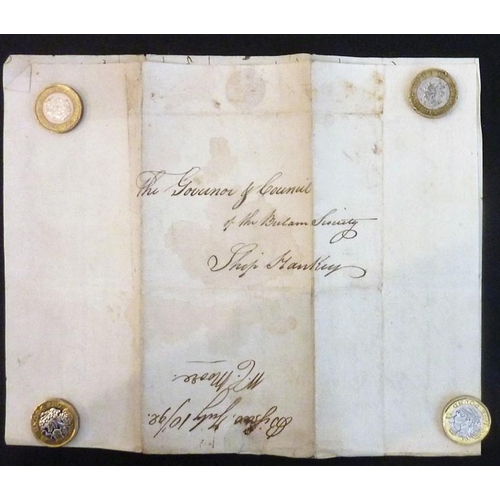 The Governor & Council
of the Bulam Society
Ship Hankey
Bissao July 10/92.
Wm Moore.